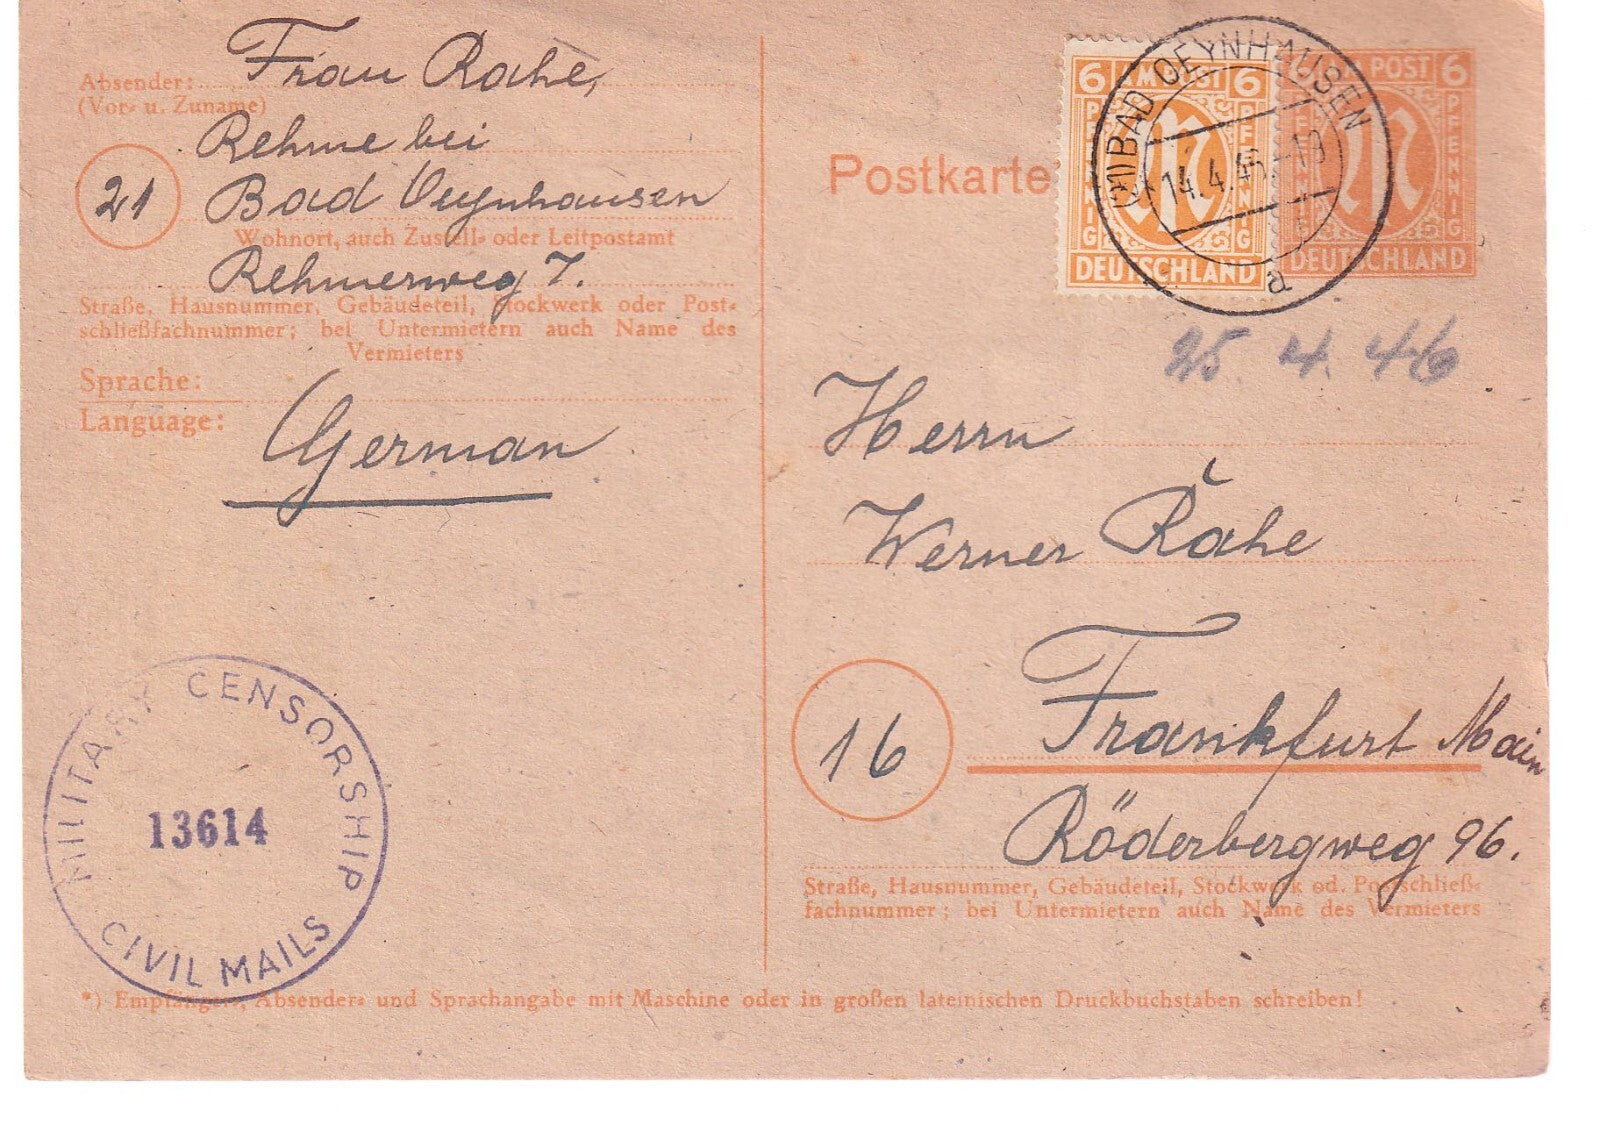 Absender: Frau Rahe,
(Vor- u. Zuname)
Rehme bei
21 Bad Oeynhausen
Wohnort, auch Zustell- oder Leitpostamt
Rehmerweg 7.
Straße, Hausnummer, Gebäudeteil, Stockwerk oder Post-
schließfachnummer; bei Untermietern auch Name des
Vermieters
Sprache:
Language: German
MILITARY CENSORSHIP
13614
CIVIL MAILS
Postkarte
6 AM POST 6
PFENNIG PFENNIG
DEUTSCHLAND
AM POST 6
PFENNIG
DEUTSCHLAND
(21) BAD OEYNHAUSEN
14.4.46.-18
a
25. 4. 46
Herrn
Werner Rahe
16 Frankfurt Main
Röderbergweg 96.
Straße, Hausnummer, Gebäudeteil, Stockwerk od. Postschließ-
fachnummer; bei Untermietern auch Name des Vermieters
*) Empfänger-, Absender- und Sprachangabe mit Maschine oder in großen lateinischen Druckbuchstaben schreiben!